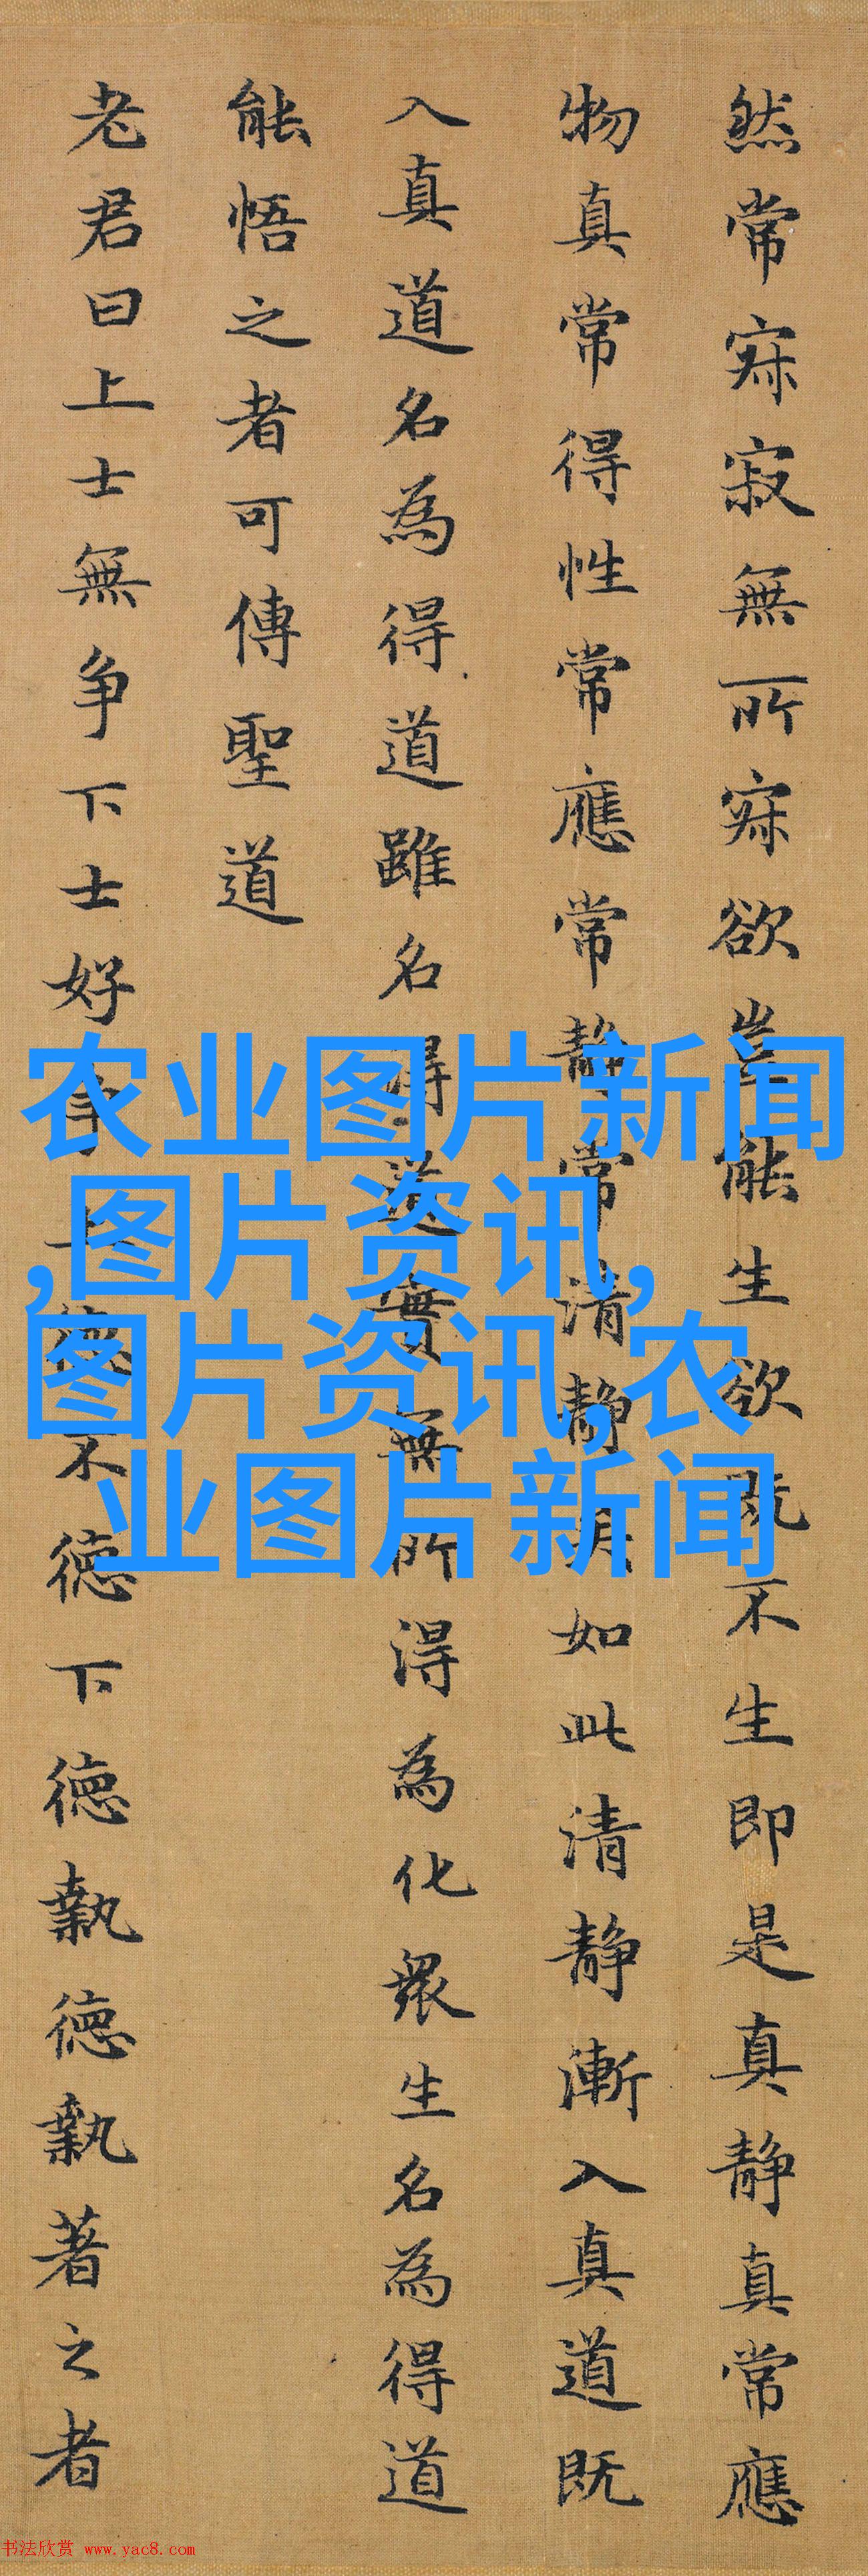 然常寂寂無所寂欲豈能生欲既不生即是真静真常應
物真常得性常應常静常清静矣如此清静漸入真道既
入真道名為得道雖名得道實無所得為化衆生名為得道
能悟之者可傳聖道
老君曰上士無争下士好争上德不德下德執德執著之者
农业图片新闻
,图片资讯,
图片资讯,农
业图片新闻
书法欣赏 www.yac8.com